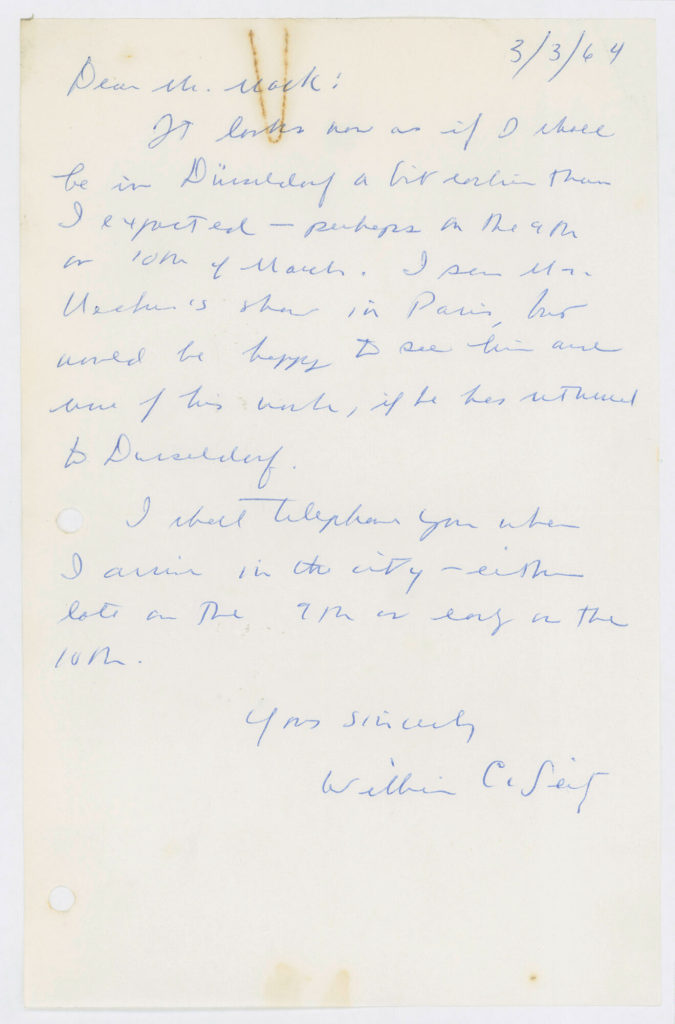 3/3/64
Dear Mr. Mack:
It looks now as if I shall
be in Düsseldorf a bit earlier than
I expected — perhaps on the 9th
or 10th of March. I saw Mr.
Uecker's show in Paris, but
would be happy to see him and
more of his work, if he has returned
to Dusseldorf.
I shall telephone you when
I arrive in the city — either
late on the 9th or early on the
10th.
Yours sincerely
William C. Seitz